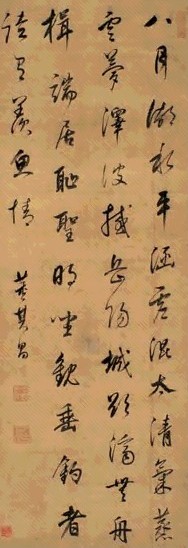 八月湖水平涵虛混太清氣蒸
雲夢澤波撼岳陽城欲濟無舟
楫端居恥聖明坐觀垂釣者
徒有羨魚情
董其昌